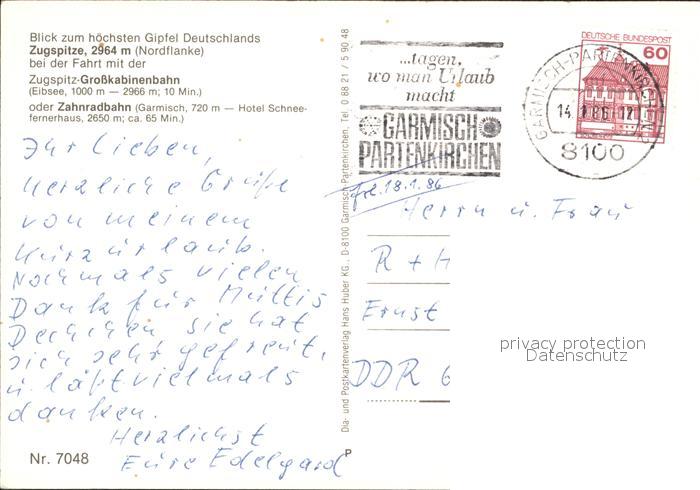 Blick zum höchsten Gipfel Deutschlands
Zugspitze, 2964 m (Nordflanke)
bei der Fahrt mit der
Zugspitz-Großkabinenbahn
(Eibsee, 1000 m — 2966 m; 10 Min.)
oder Zahnradbahn (Garmisch, 720 m — Hotel Schnee-
fernerhaus, 2650 m; ca. 65 Min.)
Ihr Lieben,
herzliche Grüße
von meinem
Kurzurlaub.
Nochmals vielen
Dank für Muttis
Deckchen sie hat
sich sehr gefreut,
u. läßt vielmals
danken.
Herzlichst
Eure Edelgard
Nr. 7048
Dia- und Postkartenverlag Hans Huber KG., D-8100 Garmisch-Partenkirchen, Tel. 0 88 21 / 5 90 48
P
...tagen,
wo man Urlaub
macht
GARMISCH
PARTENKIRCHEN
DEUTSCHE BUNDESPOST
60
GARMISCH-PARTENKIRCHEN
8100
18.1.86
Herrn u. Frau
R + H
Ernst
DDR 6
privacy protection
Datenschutz